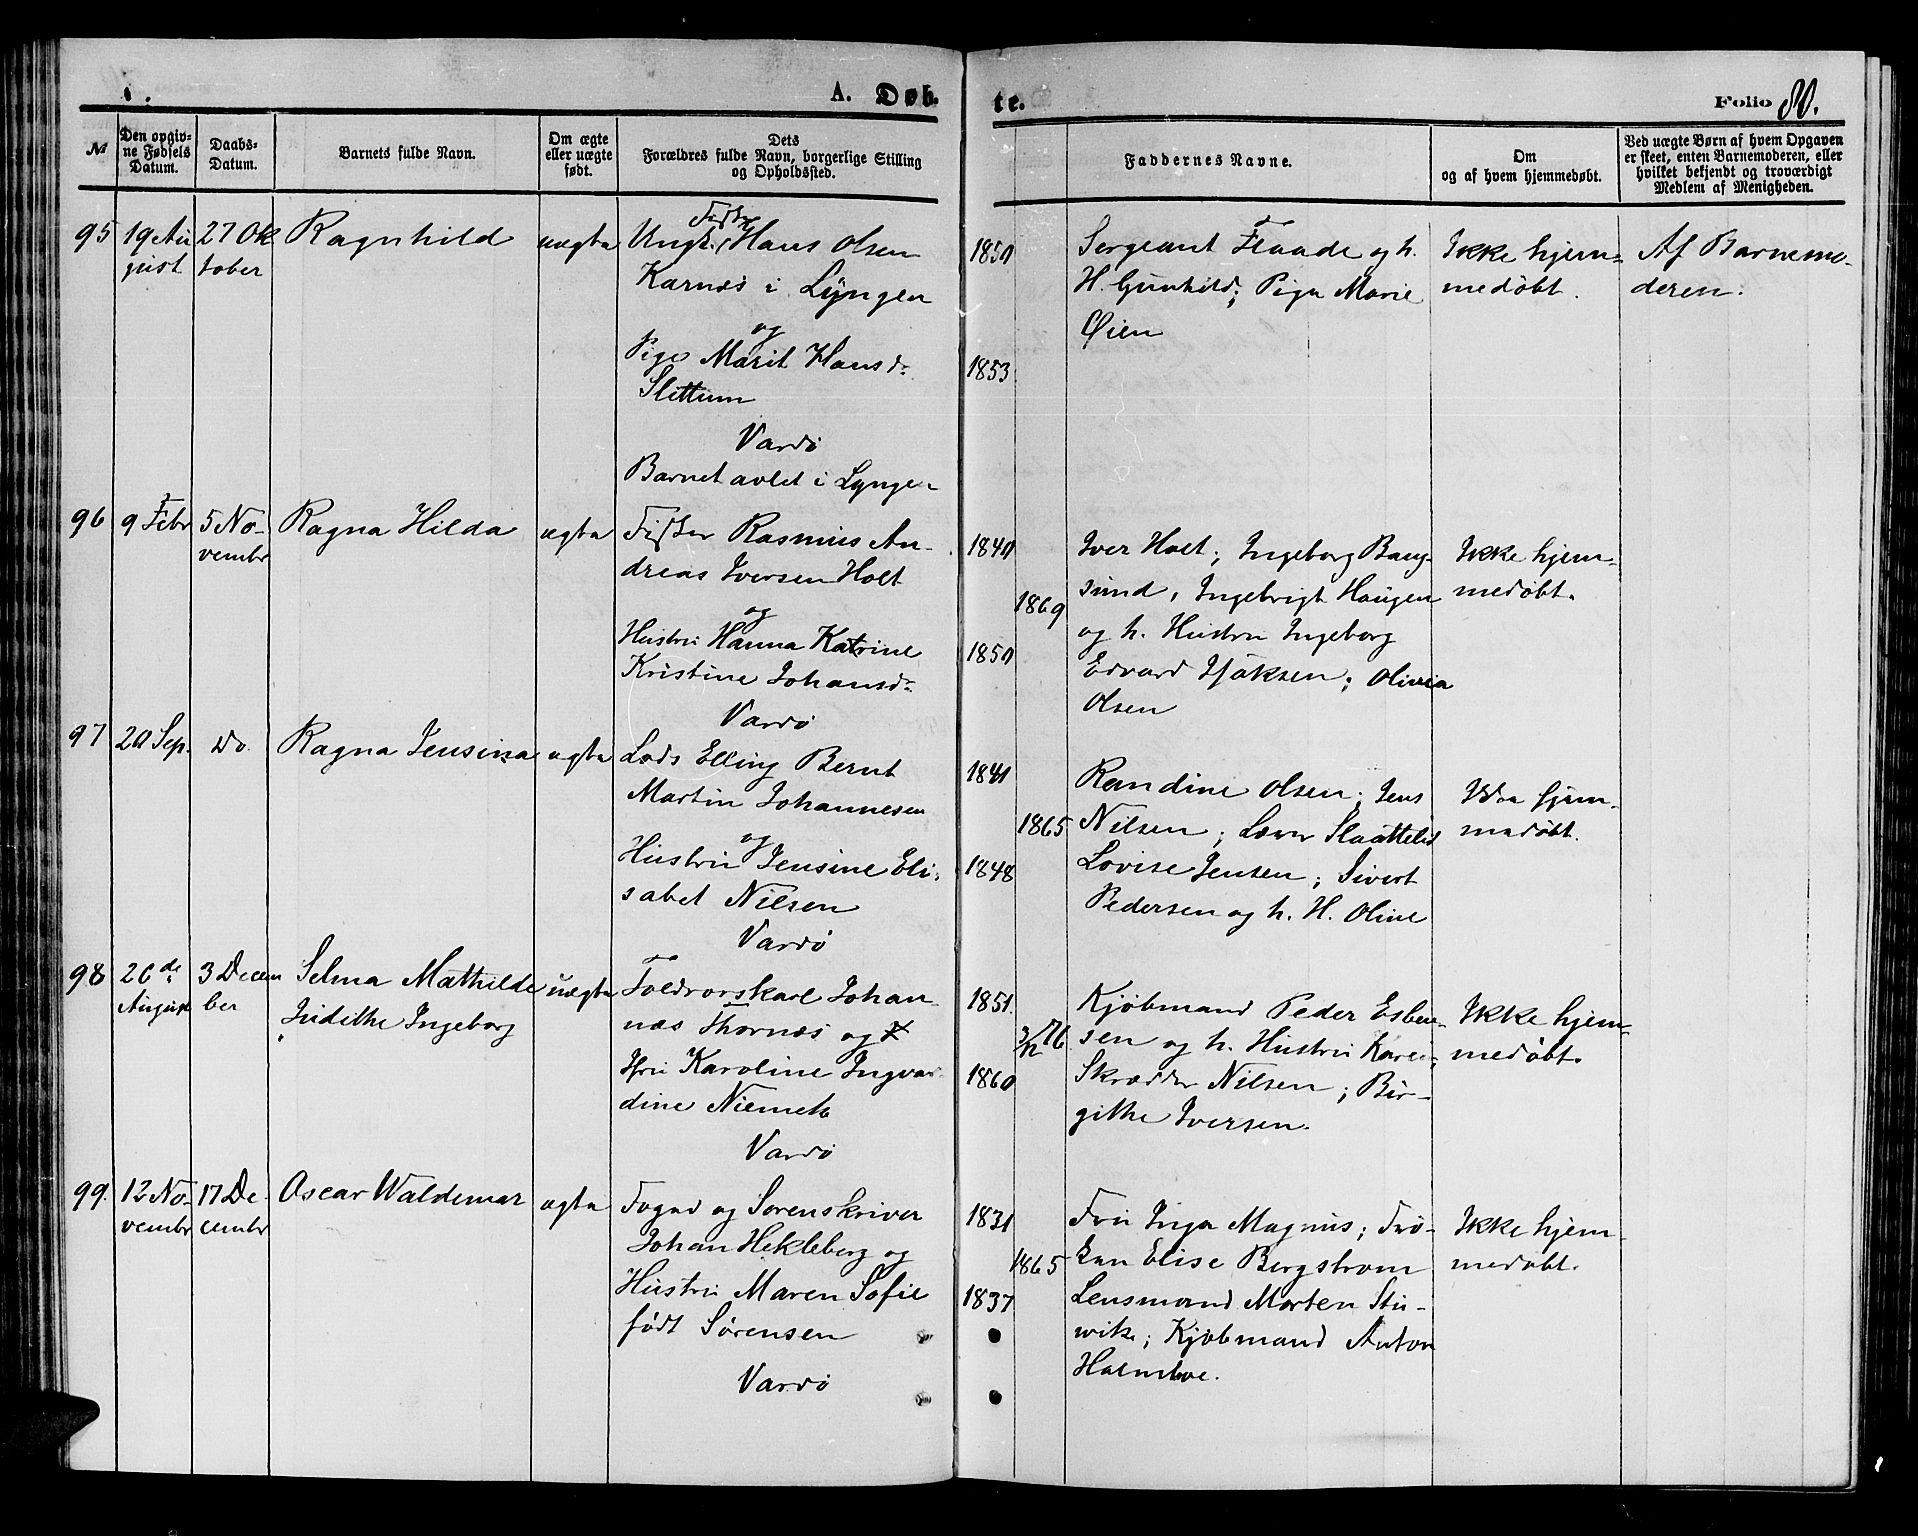 A. Døb.
te.
Folio 80.
№
Den opgiv-
ne Fødsels
Datum.
Daabs-
Datum.
Barnets fulde Navn.
Om ægte
eller uægte
født.
Dets
Forældres fulde Navn, borgerlige Stilling
og Opholdssted.
Faddernes Navne.
Om
og af hvem hjemmedøbt.
Ved uægte Børn af hvem Opgaven
er skeet, enten Barnemoderen, eller
hvilket bekjendt og troværdigt
Medlem af Menigheden.
95
19 Au
gust
27 Ok
tober
Ragnhild
uægte
Fisker
Ungk. Hans Olsen
Karnæs i Lyngen
og
Pige Marit Hansd.
Slettum
Vardö
Barnet avlet i Lyngen
1850
1853
Sergeant Flaade og h.
H. Gunhild; Pige Marie
Øien
Ikke hjem-
medøbt.
Af Barnemo-
deren.
96
9 Febr
5 No-
vembr
Ragna Hilda
ægte
Fisker Rasmus An-
dreas Iversen Holt
og
Hustru Hanna Katrine
Kristine Johansd.
Vardö
1840
1869
1850
Iver Holt; Ingeborg Bang-
sund, Ingebrigt Haugen
og h. Hustru Ingeborg
Edvard Isaksen; Olivia
Olsen
Ikke hjem-
medøbt.
97
20 Sep.
Do.
Ragna Jensina
ægte
Lods Elling Bernt
Martin Johannesen
og
Hustru Jensine Eli-
sabet Nilsen
Vardö
1841
1865
1848
Randine Olsen; Jens
Nilsen; Lærer Slaattelid
Lovise Jensen; Sivert
Pedersen og h. H. Oline
Ikke hjem-
medøbt.
98
26de
August
3 Decem
ber
Selma Mathilde
Judithe Ingeborg
uægte
Toldrorskarl Johan-
nes Thornæs og
Karoline Ingvar-
dine
Vardö
1851.
3/12 76
1860
Kjøbmand Peder Esben-
sen og h. Hustru Karen;
Skrædder Nilsen; Bir-
githe Iversen.
Ikke hjem-
medøbt.
99.
12 No-
vembr
17 De-
cembr
Oscar Waldemar
ægte
Foged og Sorenskriver
Johan Hekleberg og
Hustru Maren Sofie
født Sørensen
Vardö
1831
1865
1837
Fru Inga Magnus; Frö-
ken Elise Bergstrøm
Lensmand Morten Stu-
wik; Kjøbmand Anton
Holmboe.
Ikke hjem-
medøbt.